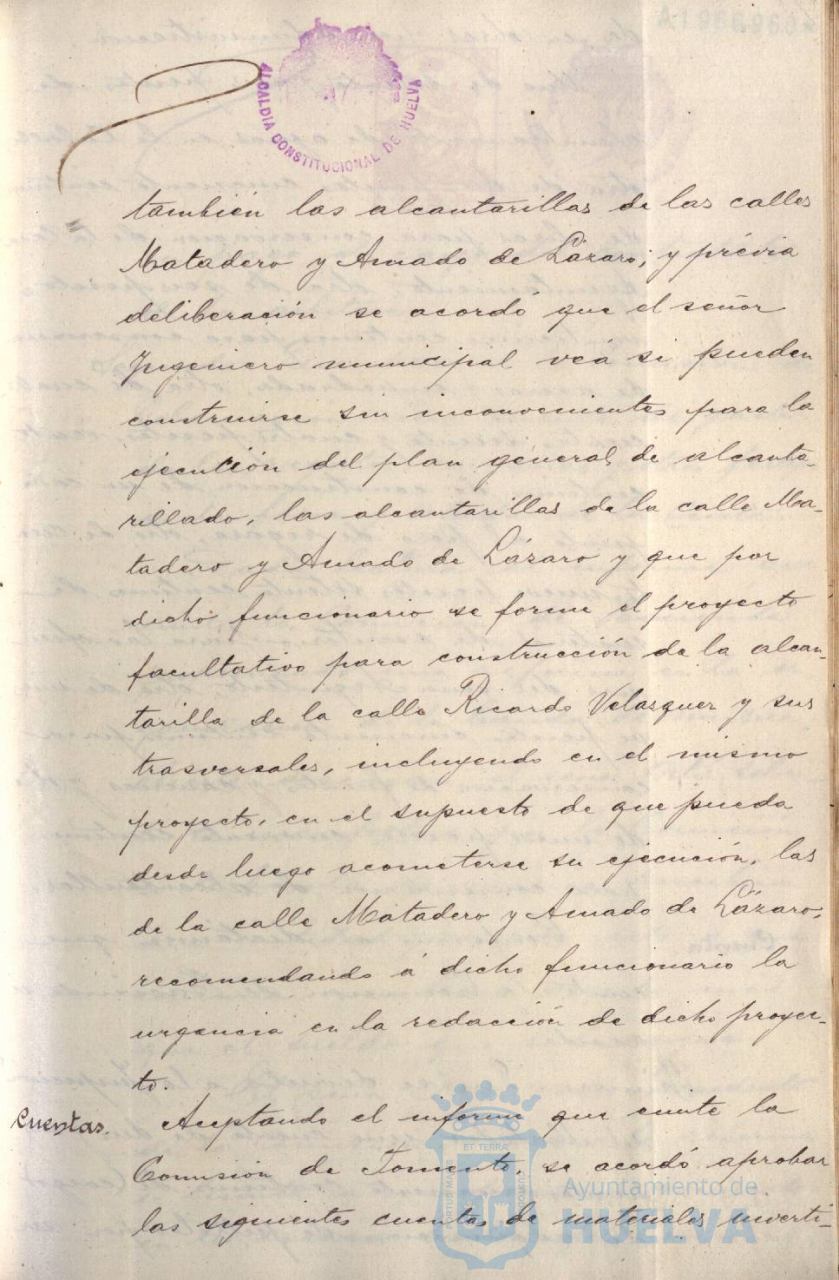 ALCALDIA CONSTITUCIONAL DE HUELVA
también las alcantarillas de las calles
Matadero y Amado de Lázaro; y prévia
deliberación se acordó que el señor
Ingeniero municipal veá si pueden
construirse sin inconvenientes para la
ejecución del plan general de alcanta-
rillado, las alcantarillas de la calle Ma-
tadero y Amado de Lázaro y que por
dicho funcionario se forme el proyecto
facultativo para construcción de la alcan-
tarilla de la calle Ricardo Velazquez y sus
trasversales, incluyendo en el mismo
proyecto, en el supuesto de que pueda
desde luego acometerse su ejecución, las
de la calle Matadero y Amado de Lázaro,
recomendando á dicho funcionario la
urgencia en la redacción de dicho proyec-
to.
Cuentas. Aceptando el informe que emite la
Comisión de Fomento, se acordó aprobar
las siguientes cuentas de materiales inverti-
ET TERRA
Ayuntamiento de
HUELVA